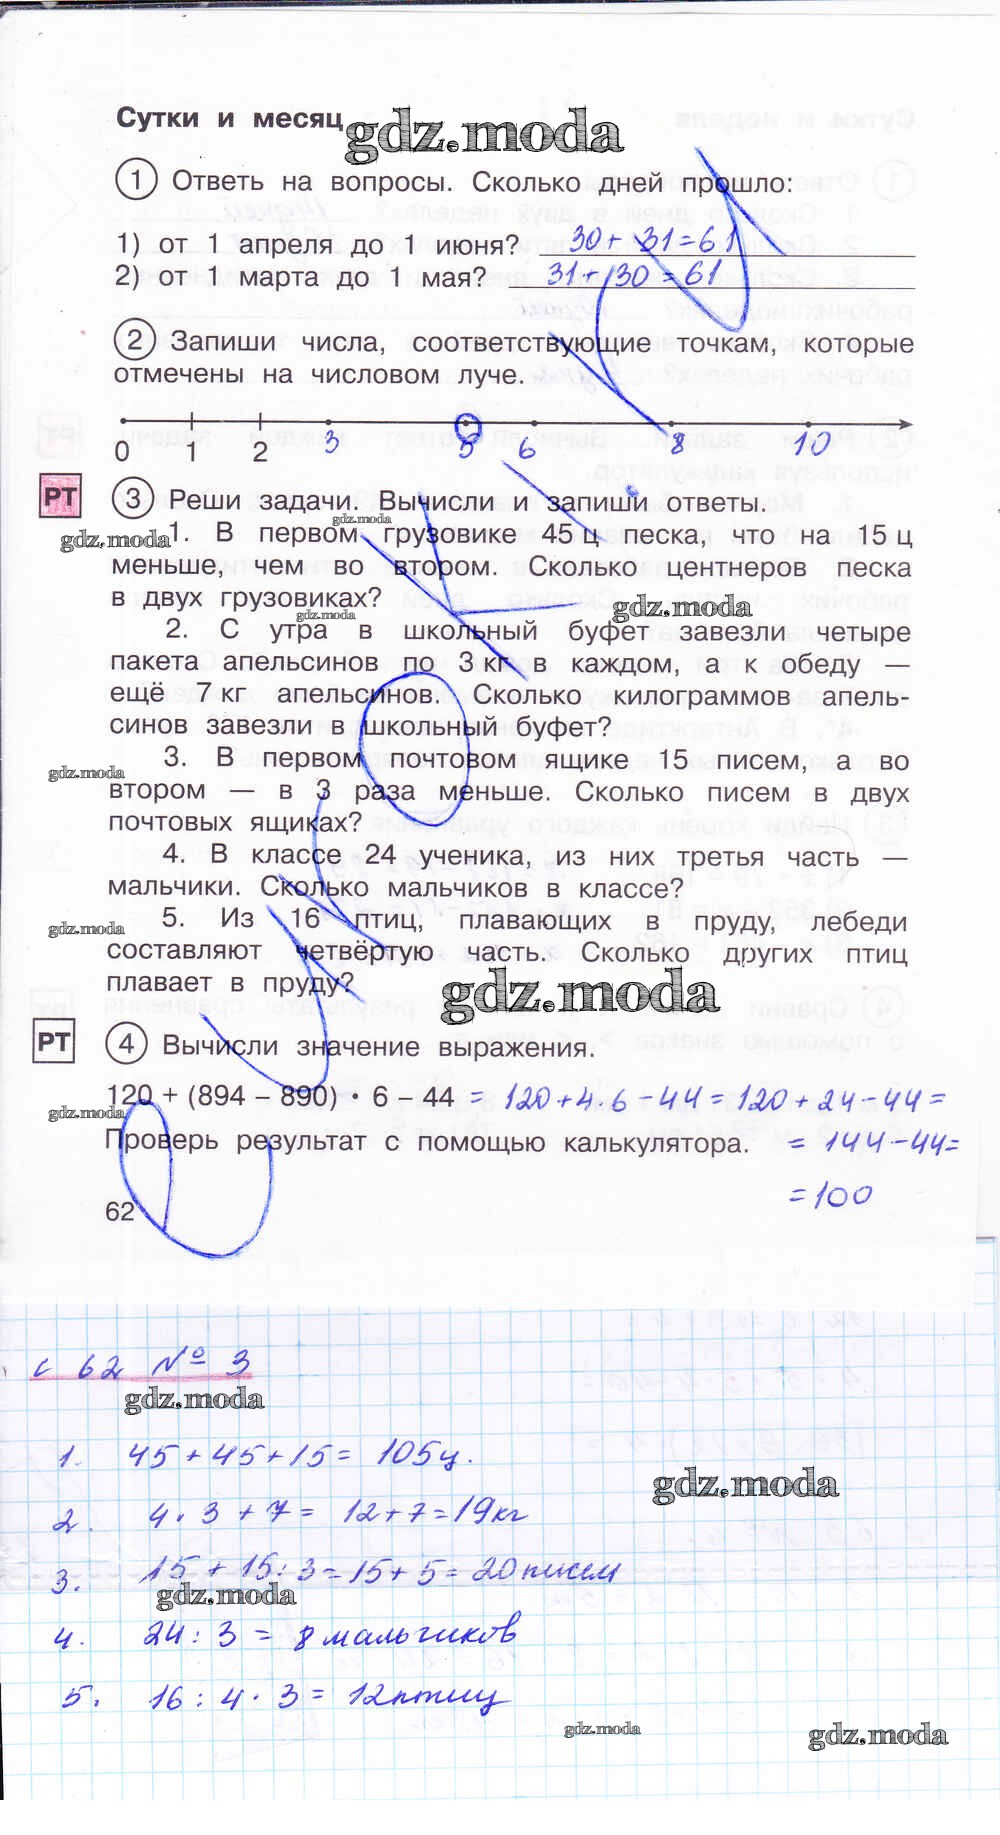 Сутки и месяц
gdz.moda
1 Ответь на вопросы. Сколько дней прошло:
1) от 1 апреля до 1 июня? 30 + 31 = 61
2) от 1 марта до 1 мая? 31 + 30 = 61
2 Запиши числа, соответствующие точкам, которые
отмечены на числовом луче.
0 1 2 3 5 6 8 10
РТ 3 Реши задачи. Вычисли и запиши ответы.
gdz.moda
gdz.moda
1. В первом грузовике 45 ц песка, что на 15 ц
меньше, чем во втором. Сколько центнеров песка
в двух грузовиках?
gdz.moda
gdz.moda
2. С утра в школьный буфет завезли четыре
пакета апельсинов по 3 кг в каждом, а к обеду —
ещё 7 кг апельсинов. Сколько килограммов апель-
синов завезли в школьный буфет?
3. В первом почтовом ящике 15 писем, а во
gdz.moda
втором — в 3 раза меньше. Сколько писем в двух
почтовых ящиках?
4. В классе 24 ученика, из них третья часть —
мальчики. Сколько мальчиков в классе?
5. Из 16 птиц, плавающих в пруду, лебеди
gdz.moda
составляют четвёртую часть. Сколько других птиц
плавает в пруду?
gdz.moda
РТ 4 Вычисли значение выражения.
120 + (894 – 890) • 6 – 44 = 120 + 4 · 6 – 44 = 120 + 24 – 44 =
gdz.moda
Проверь результат с помощью калькулятора. = 144 – 44 =
= 100
62
с 62 № 3
gdz.moda
1. 45 + 45 + 15 = 105 ц.
gdz.moda
2. 4 · 3 + 7 = 12 + 7 = 19 кг
3. 15 + 15 : 3 = 15 + 5 = 20 писем
gdz.moda
4. 24 : 3 = 8 мальчиков
5. 16 : 4 · 3 = 12 птиц
gdz.moda
gdz.moda